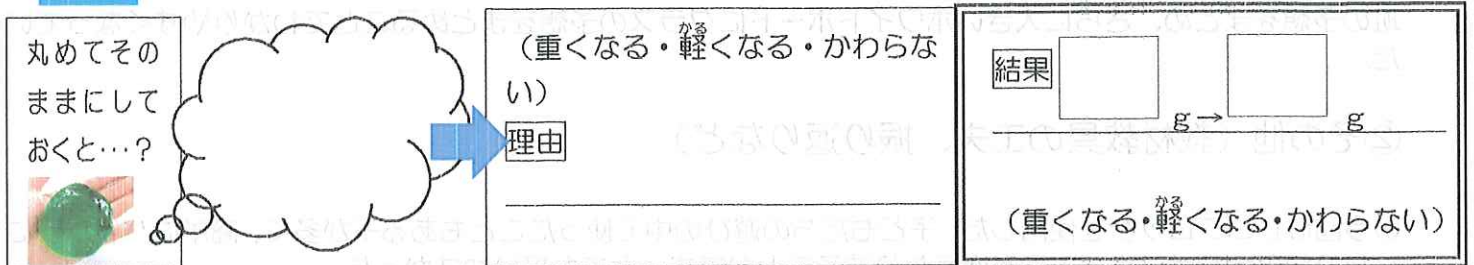 丸めてその
ままにして
おくと…？
（重くなる・軽くなる・かわらな
い）
理由
結果
g→ g
（重くなる・軽くなる・かわらない）